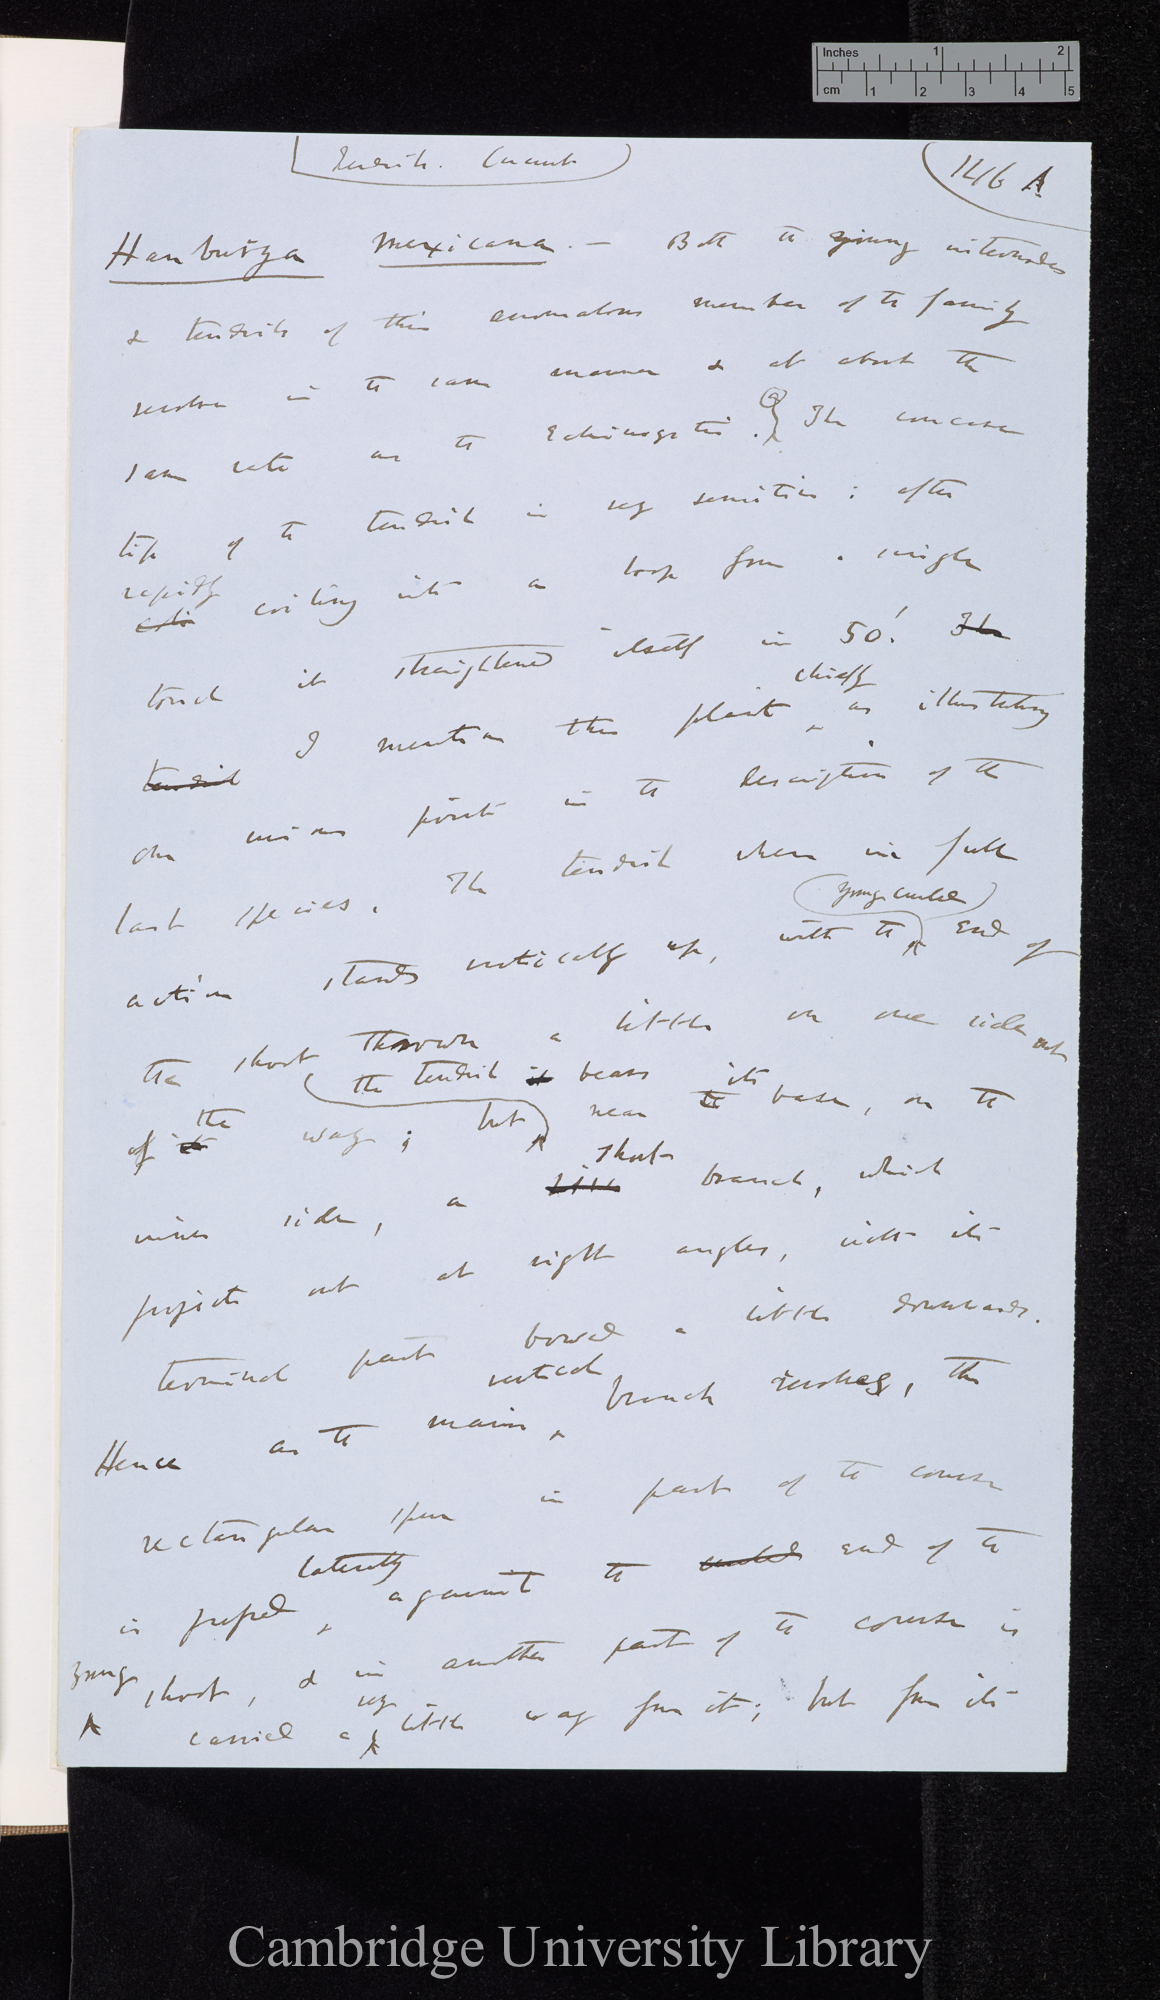 Inches 1 2
cm 1 2 3 4 5
Tendrils. Cucurb
146 A
Hanburya mexicana. — Both the young internodes
& tendrils of this anomalous member of the family
revolve in the same manner & at about the
same rate as the Echinocystis. (a) The concave
tip of the tendril is very sensitive; after
rapidly
coiling into a loop from a single
touch it straightened itself in 50'. The
chiefly
tendril I mention this plant, as illustrating
one minor point in the description of the
last species. The tendril when in full
young curled
action stands vertically up, with the end of
the shoot thrown a little on one side out
the tendril bears its
of the way; but near the base, on the
short
inner side, a little branch, which
projects out at right angles, with its
terminal part bowed a little downwards.
vertical
Hence as the main branch revolves, the
rectangular spur in part of the course
laterally
is pressed, against the curled end of the
young shoot, & in another part of the course is
very
carried a little way from it; but from its
Cambridge University Library